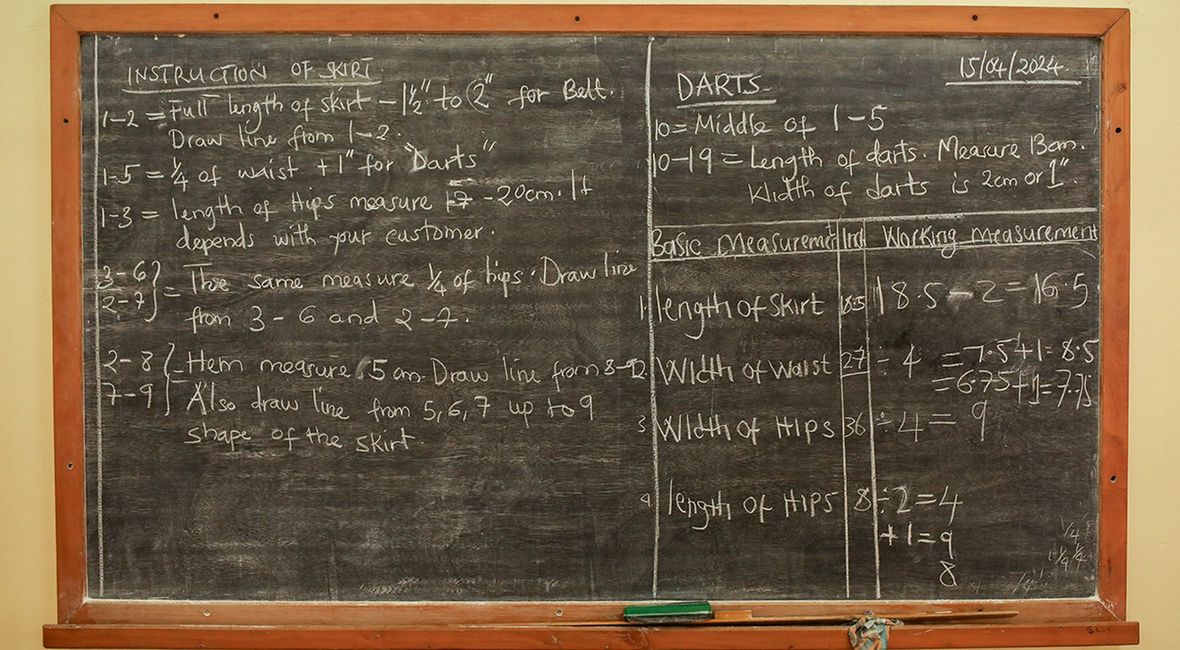 INSTRUCTION OF SKIRT
1-2 = Full length of skirt - 1½" to 2" for Belt.
Draw line from 1-2.
1-5 = ¼ of waist +1" for "Darts"
1-3 = length of Hips measure 17 - 20cm. It
depends with your customer.
3-6
2-7 } = The same measure ¼ of hips. Draw line
from 3-6 and 2-7.
2-8 } - Hem measure 5 cm. Draw line from 8-9
7-9 } Also draw line from 5,6,7 up to 9
shape of the skirt.
15/04/2024.
DARTS
10 = Middle of 1-5
10-19 = Length of darts. Measure 13cm.
Width of darts is 2cm or 1".
Basic Measurement Ind Working measurement
1 length of skirt 18.5 18.5 - 2 = 16.5
2 Width of Waist 27 ÷ 4 = 7.5+1=8.5
= 6.75+1=7.75
3 Width of Hips 36 ÷ 4 = 9
4 length of Hips 8 ÷ 2 = 4
+1 = 9
8
¼
¼ ¼